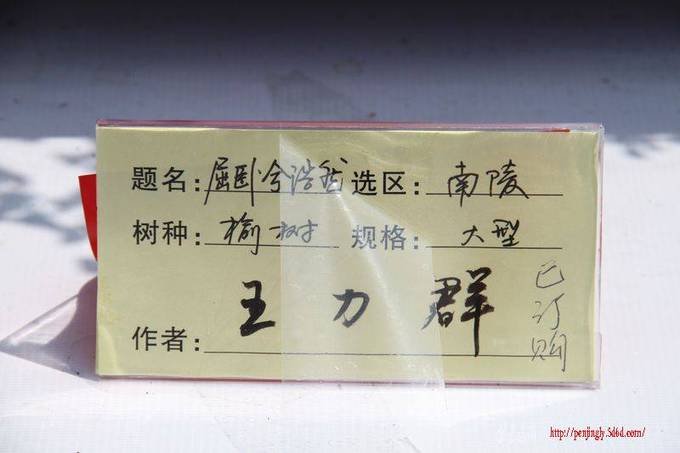 题名: 屈卧兮浩然 选区: 南陵
树种: 榆树 规格: 大型
作者: 王力群
已订购
http://penjingly.5d6d.com/